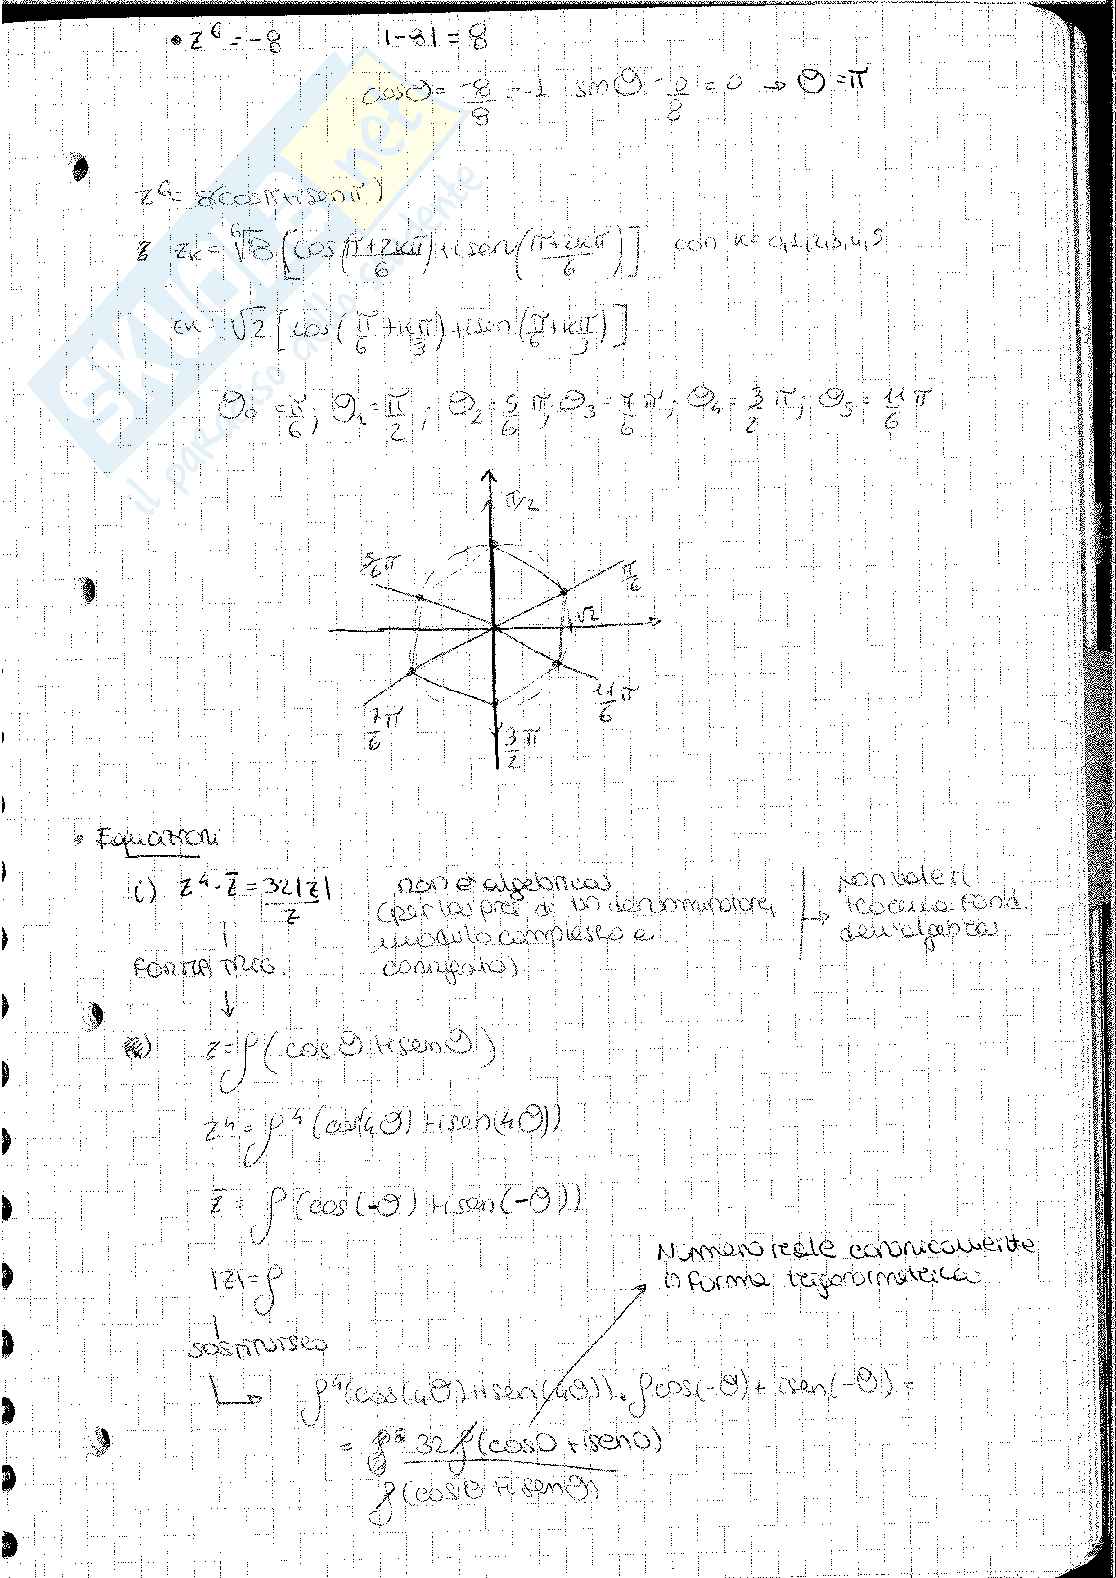 • z⁶ = -8 |-8| = 8
cosθ = -8/8 = -1 senθ = 0/8 = 0 → θ = π
z⁶ = 8(cosπ + isenπ)
zk = ⁶√8 [cos(π+2kπ/6) + isen(π+2kπ/6)] con k = 0,1,2,3,4,5
zk = √2 [cos(π/6 + kπ/3) + isen(π/6 + kπ/3)]
θ₀ = π/6; θ₁ = π/2; θ₂ = 5/6 π; θ₃ = 7/6 π; θ₄ = 3/2 π; θ₅ = 11/6 π
π/2
5/6 π
π/6
√2
11/6 π
7/6 π
3/2 π
• Equazioni
i) z⁴ · z̅ = 32|z|/z non è algebrica
(per la pres. di un denominatore,
modulo complesso e
coniugato)
Non vale il
teorema fond.
dell'algebra
FORMA TRIG.
z = ρ(cosθ + isenθ)
z⁴ = ρ⁴(cos(4θ) + isen(4θ))
z̅ = ρ(cos(-θ) + isen(-θ))
Numero reale canonicamente
in forma trigonometrica
|z| = ρ
sostituisco
ρ⁴(cos(4θ) + isen(4θ)) · ρcos(-θ) + isen(-θ) =
= 32ρ(cos0 + isen0)
ρ(cosθ + isenθ)
SKUOLA.net
il paradiso dello studente